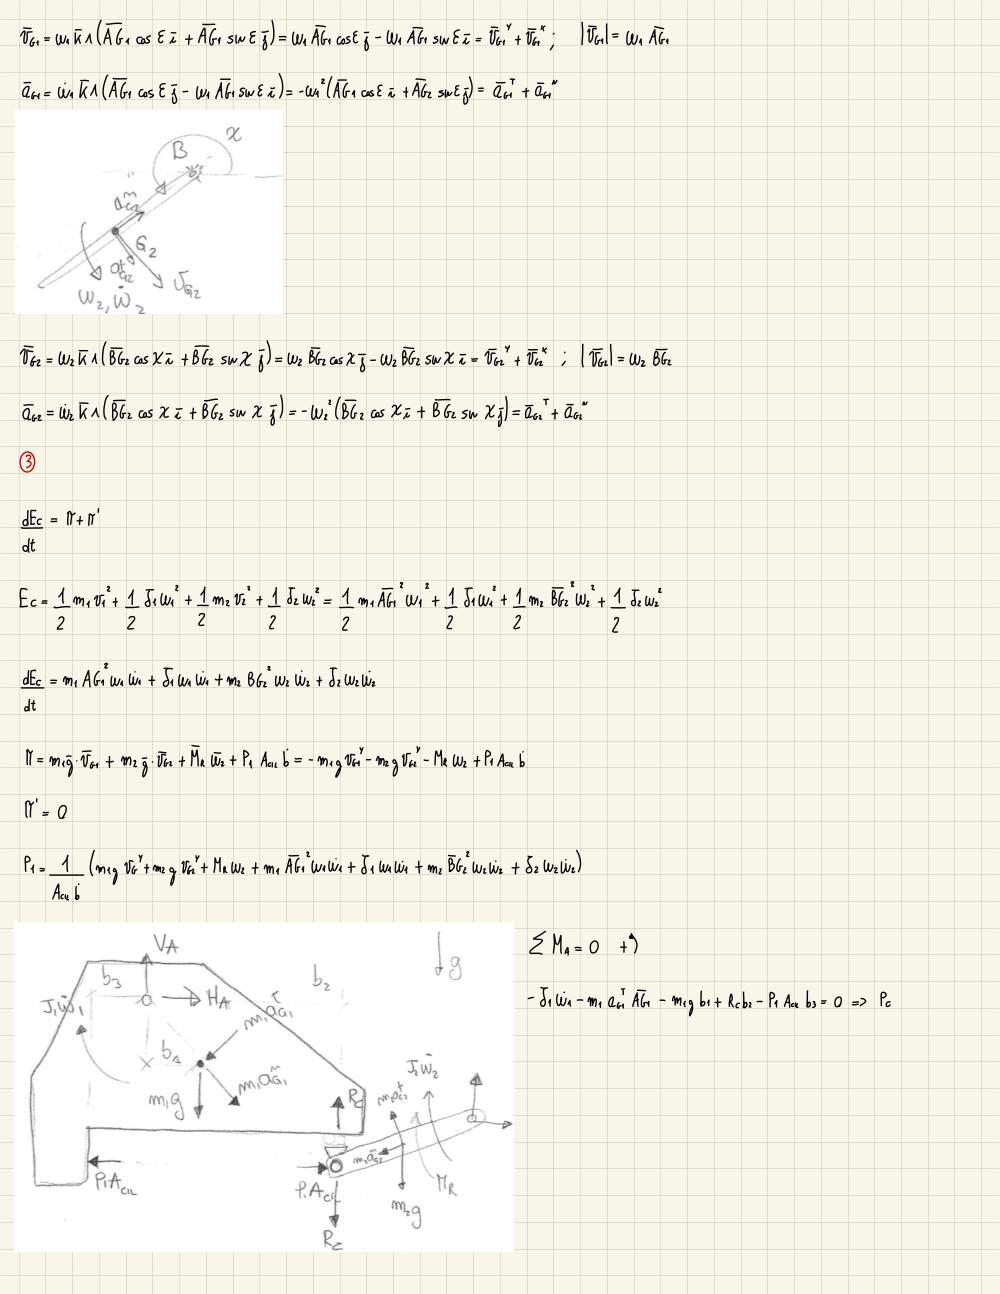 v̄G1 = ω1 k̄ ∧ (A̅G̅1 cos ε ī + A̅G̅1 sin ε j̄) = ω1 A̅G̅1 cos ε j̄ - ω1 A̅G̅1 sin ε ī = v̄G1^Y + v̄G1^X ; |v̄G1| = ω1 A̅G̅1
āG1 = ω̇1 k̄ ∧ (A̅G̅1 cos ε j̄ - ω1 A̅G̅1 sin ε ī) = -ω1² (A̅G̅1 cos ε ī + A̅G̅2 sin ε j̄) = āG1^T + āG1^N
B
x
aG2^n
G2
aG2^t
vG2
ω2, ω̇2
v̄G2 = ω2 k̄ ∧ (B̅G̅2 cos χ ī + B̅G̅2 sin χ j̄) = ω2 B̅G̅2 cos χ j̄ - ω2 B̅G̅2 sin χ ī = v̄G2^Y + v̄G2^X ; |v̄G2| = ω2 B̅G̅2
āG2 = ω̇2 k̄ ∧ (B̅G̅2 cos χ ī + B̅G̅2 sin χ j̄) = -ω2² (B̅G̅2 cos χ ī + B̅G̅2 sin χ j̄) = āG2^T + āG2^N
③
dEc/dt = Π + Π'
Ec = 1/2 m1 v1² + 1/2 J1 ω1² + 1/2 m2 v2² + 1/2 J2 ω2² = 1/2 m1 A̅G̅1² ω1² + 1/2 J1 ω1² + 1/2 m2 B̅G̅2² ω2² + 1/2 J2 ω2²
dEc/dt = m1 AG1² ω1 ω̇1 + J1 ω1 ω̇1 + m2 BG2² ω2 ω̇2 + J2 ω2 ω̇2
Π = m1 ḡ · v̄G1 + m2 ḡ · v̄G2 + M̄R ω̄2 + P1 Acil ḃ = - m1 g vG1^Y - m2 g vG2^Y - MR ω2 + P1 Acil ḃ
Π' = 0
P1 = 1/(Acil ḃ) (m1 g vG^Y + m2 g vG2^Y + MR ω2 + m1 A̅G̅1² ω1 ω̇1 + J1 ω1 ω̇1 + m2 B̅G̅2² ω2 ω̇2 + J2 ω2 ω̇2)
VA
b3
b2
g
HA
J1 ω̇1
m1 aG1^t
b1
m1 g
m1 aG1^n
Rc
J2 ω̇2
m2 aG2^t
m2 aG2^n
P1 Acil
P1 Acil
MR
m2 g
Rc
Σ MA = 0 +)
- J1 ω̇1 - m1 aG1^T A̅G̅1 - m1 g b1 + Rc b2 - P1 Acil b3 = 0 => Pc